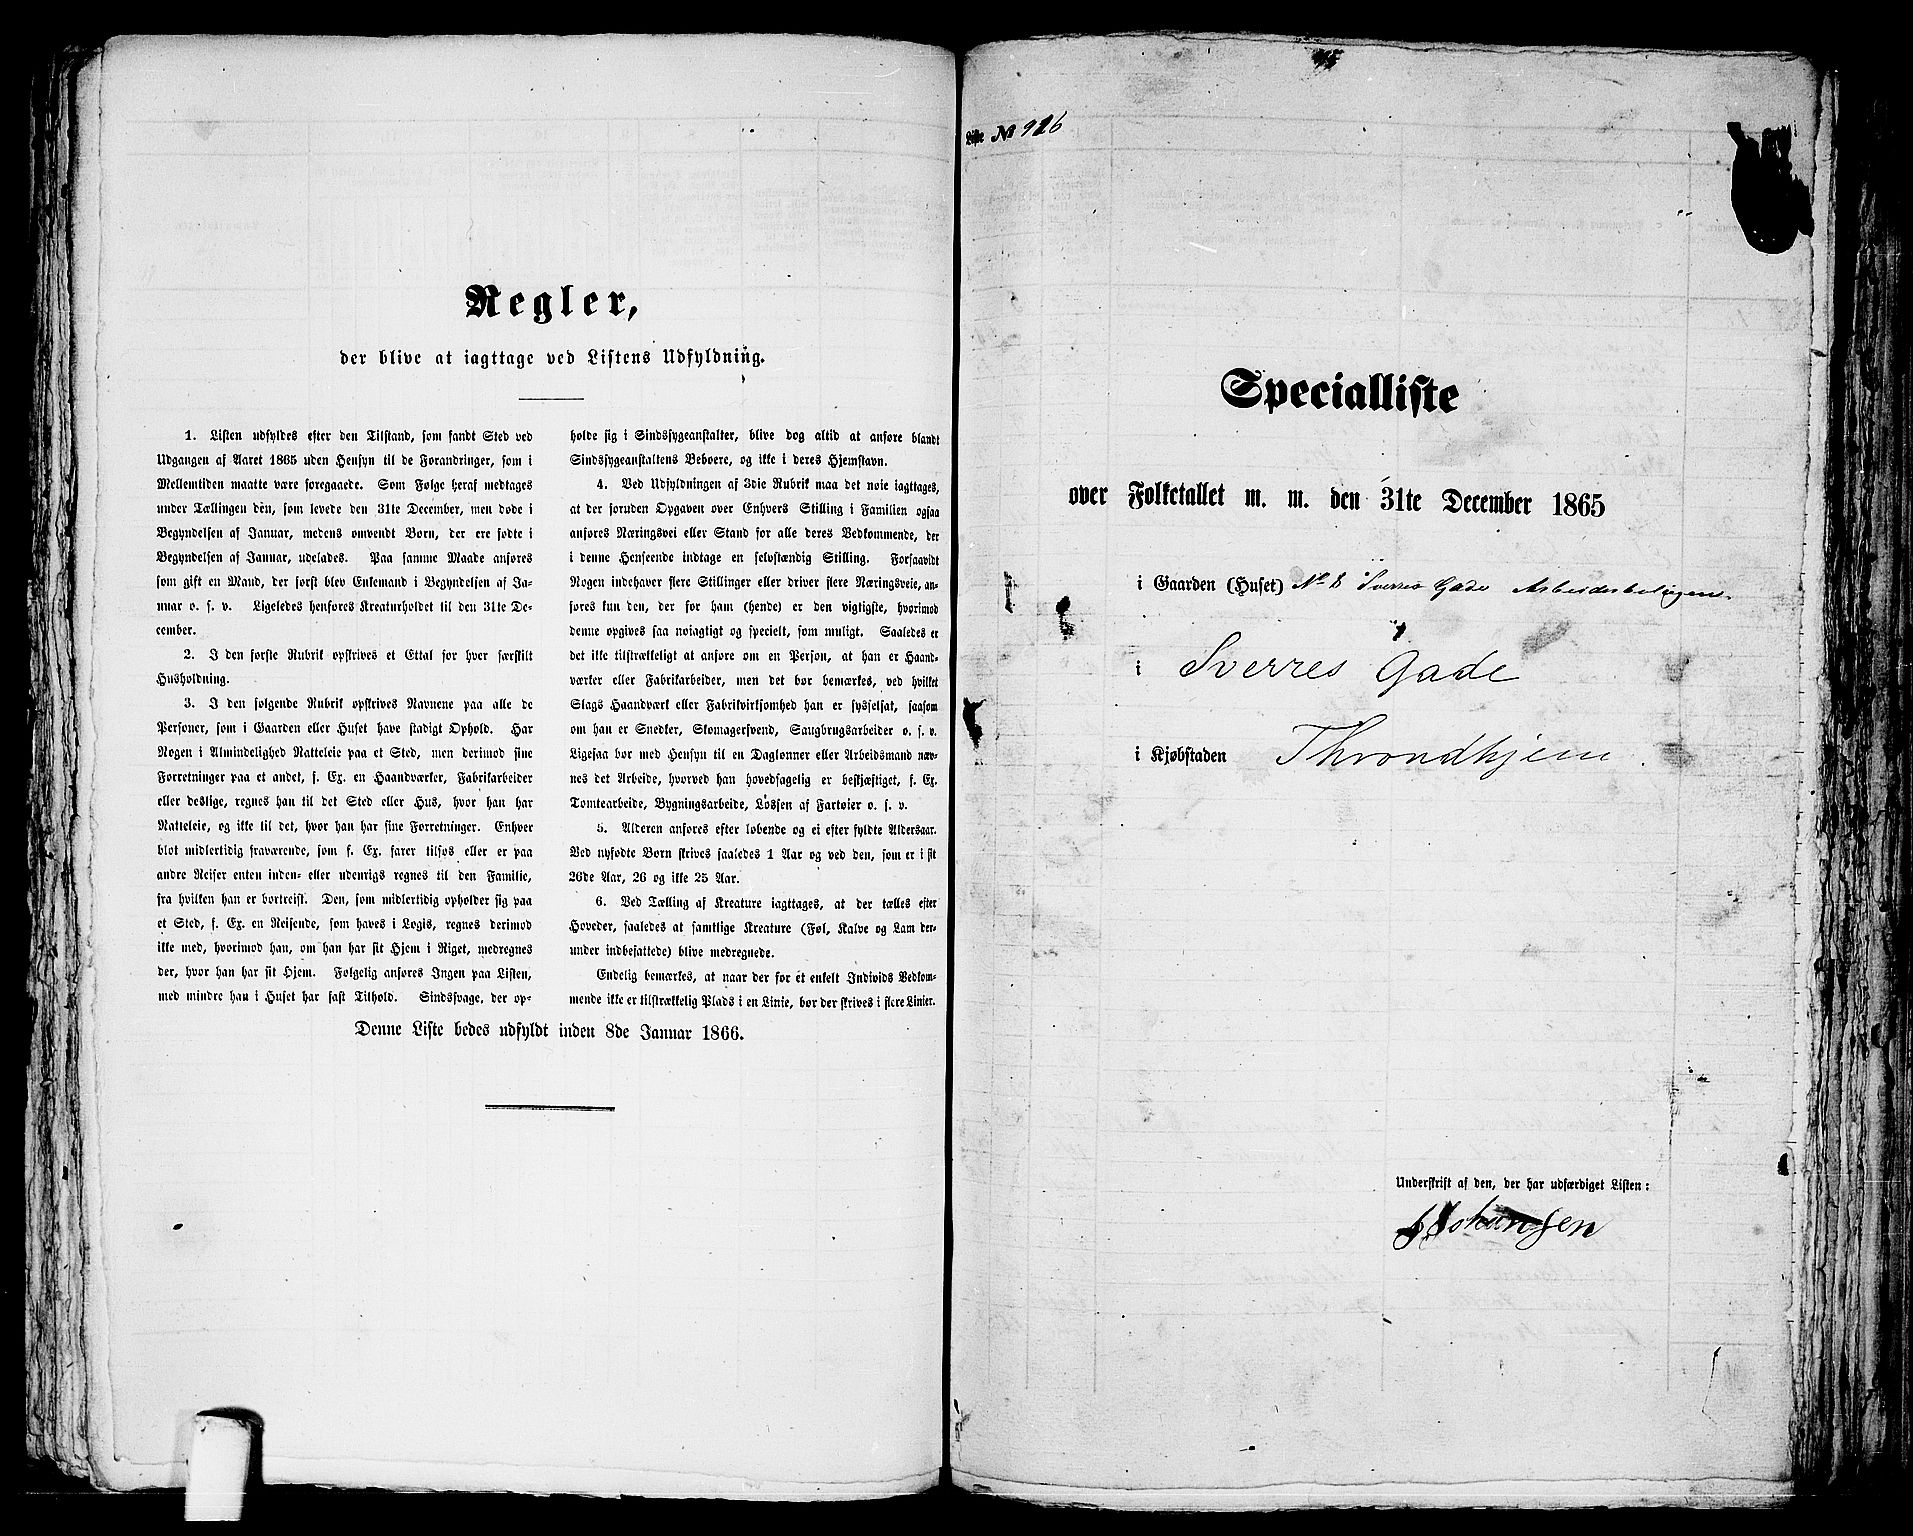 Regler,
der blive at iagttage ved Listens Udfyldning.
1. Listen udfyldes efter den Tilstand, som fandt Sted ved
Udgangen af Aaret 1865 uden Hensyn til de Forandringer, som i
Mellemtiden maatte være foregaaede. Som Følge heraf medtages
under Tællingen den, som levede den 31te December, men døde i
Begyndelsen af Januar, medens omvendt Børn, der ere fødte i
Begyndelsen af Januar, udelades. Paa samme Maade anføres
som gift en Mand, der først blev Enkemand i Begyndelsen af Ja-
nuar o. s. v. Ligeledes henføres Kreaturholdet til den 31te De-
cember.
2. I den første Rubrik opskrives et Ettal for hver særskilt
Husholdning.
3. I den følgende Rubrik opskrives Navnene paa alle de
Personer, som i Gaarden eller Huset have stadigt Ophold. Har
Nogen i Almindelighed Natteleie paa et Sted, men derimod sine
Forretninger paa et andet, f. Ex. en Haandværker, Fabrikarbeider
eller deslige, regnes han til det Sted eller Hus, hvor han har
Natteleie, og ikke til det, hvor han har sine Forretninger. Enhver
blot midlertidig fraværende, som f. Ex. farer tilsøs eller er paa
andre Reiser enten inden- eller udenrigs regnes til den Familie,
fra hvilken han er bortreist. Den, som midlertidig opholder sig paa
et Sted, f. Ex. en Reisende, som haves i Logis, regnes derimod
ikke med, hvorimod han, om han har sit Hjem i Riget, medregnes
der, hvor han har sit Hjem. Følgelig anføres Ingen paa Listen,
med mindre han i Huset har fast Tilhold. Sindssvage, der op-
holde sig i Sindssygeanstalter, blive dog altid at anføre blandt
Sindssygeanstaltens Beboere, og ikke i deres Hjemstavn.
4. Ved Udfyldningen af 3die Rubrik maa det nøie iagttages,
at der foruden Opgaven over Enhvers Stilling i Familien ogsaa
anføres Næringsvei eller Stand for alle deres Vedkommende, der
i denne Henseende indtage en selvstændig Stilling. Forsaavidt
Nogen indehaver flere Stillinger eller driver flere Næringsveie, an-
føres kun den, der for ham (hende) er den vigtigste, hvorimod
denne opgives saa nøiagtigt og specielt, som muligt. Saaledes er
det ikke tilstrækkeligt at anføre om en Person, at han er Haand-
værker eller Fabrikarbeider, men det bør bemærkes, ved hvilket
Slags Haandværk eller Fabrikvirksomhed han er sysselsat, saasom
om han er Snedker, Skomagersvend, Saugbrugsarbeider o. s. v.
Ligesaa bør med Hensyn til en Daglønner eller Arbeidsmand næv-
nes det Arbeide, hvorved han hovedsagelig er beskjæftiget, f. Ex.
Tomtearbeide, Bygningsarbeide, Lossen af Fartøier o. s. v.
5. Alderen anføres efter løbende og ei efter fyldte Aldersaar.
Ved nyfødte Børn skrives saaledes 1 Aar og ved den, som er i sit
26de Aar, 26 og ikke 25 Aar.
6. Ved Tælling af Kreature iagttages, at der tælles efter
Hoveder, saaledes at samtlige Kreature (Føl, Kalve og Lam der-
under indbefattede) blive medregnede.
Endelig bemærkes, at naar der for et enkelt Individs Vedkom-
mende ikke er tilstrækkelig Plads i en Linie, bør der skrives i flere Linier.
Denne Liste bedes udfyldt inden 8de Januar 1866.
Liste No 926
Specialliste
over Folketallet m. m. den 31te December 1865
i Gaarden (Huset) No 8 Sverres Gade
i Sverres Gade
i Kjøbstaden Throndhjem
Underskrift af den, der har udfærdiget Listen:
Johansen